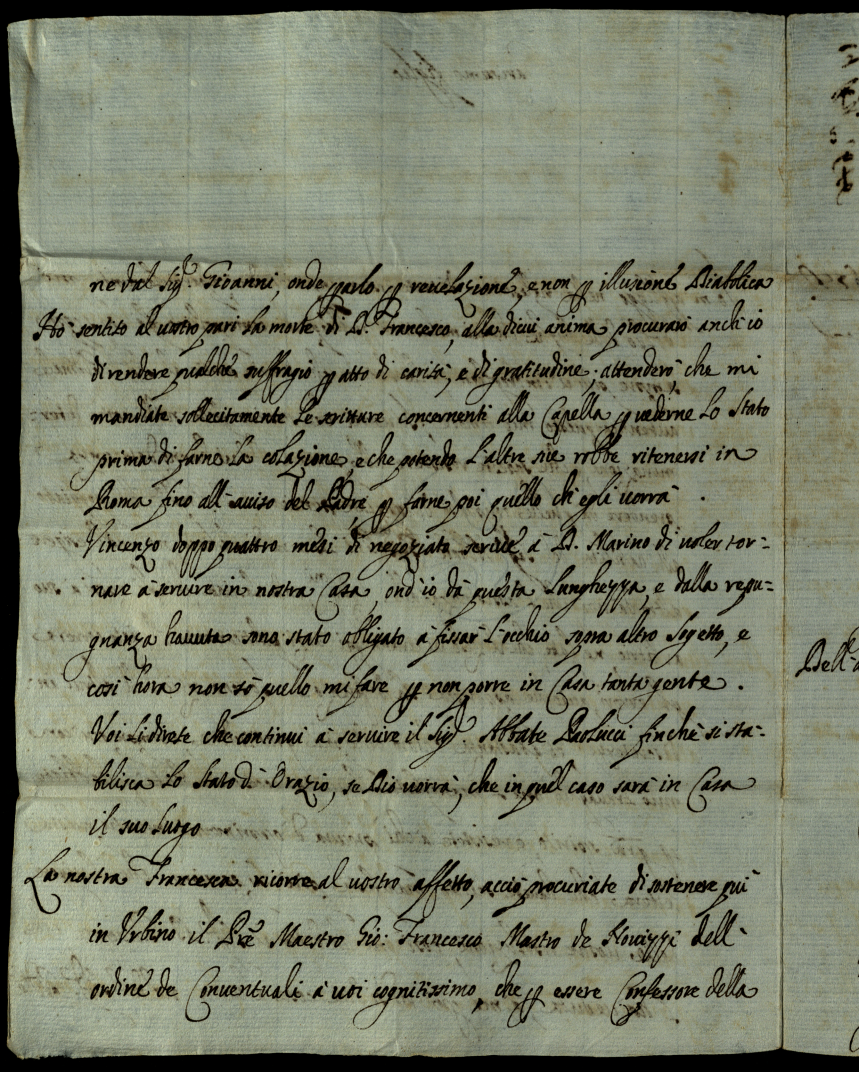 ne dal Sig.r Giovanni, onde parlo p revelazione, e non p illusione Diabolica
Hò sentito al vostro pari la morte di D. Francesco, alla di cui anima procurarò anch'io
di rendere qualche suffragio p atto di carità, e di gratitudine; attenderò, che mi
mandiate sollecitamente le scritture concernenti alla Capella p vederne lo stato
prima di farne la colazione, e che potendo l'altre sue robbe ritenersi in
Roma fino all'aviso del Padre p farne poi quello ch'egli vorrà.
Vincenzo doppo quattro mesi di negoziato scrive à D. Marino di voler tor=
nare à servire in nostra Casa, ond'io dà questa lunghezza, e dalla repu=
gnanza havuta sono stato obligato à fissar l'occhio sopra altro sogetto, e
così hora non sò quello mi fare p non porre in Casa tanta gente.
Voi li direte che continui à servire il Sig.r Abbate Paolucci finche si sta=
bilisca lo Stato d'Orazio, se Dio vorrà, che in quel caso sarà in Casa
il suo luogo
La nostra Francesca ricorre al vostro affetto, acciò procuriate di sostenere quì
in Urbino il Pre Maestro Gio: Francesco Mastro de Novizzi dell'
ordine de Conventuali à voi cognitissimo, che p essere Confessore della
Dell'